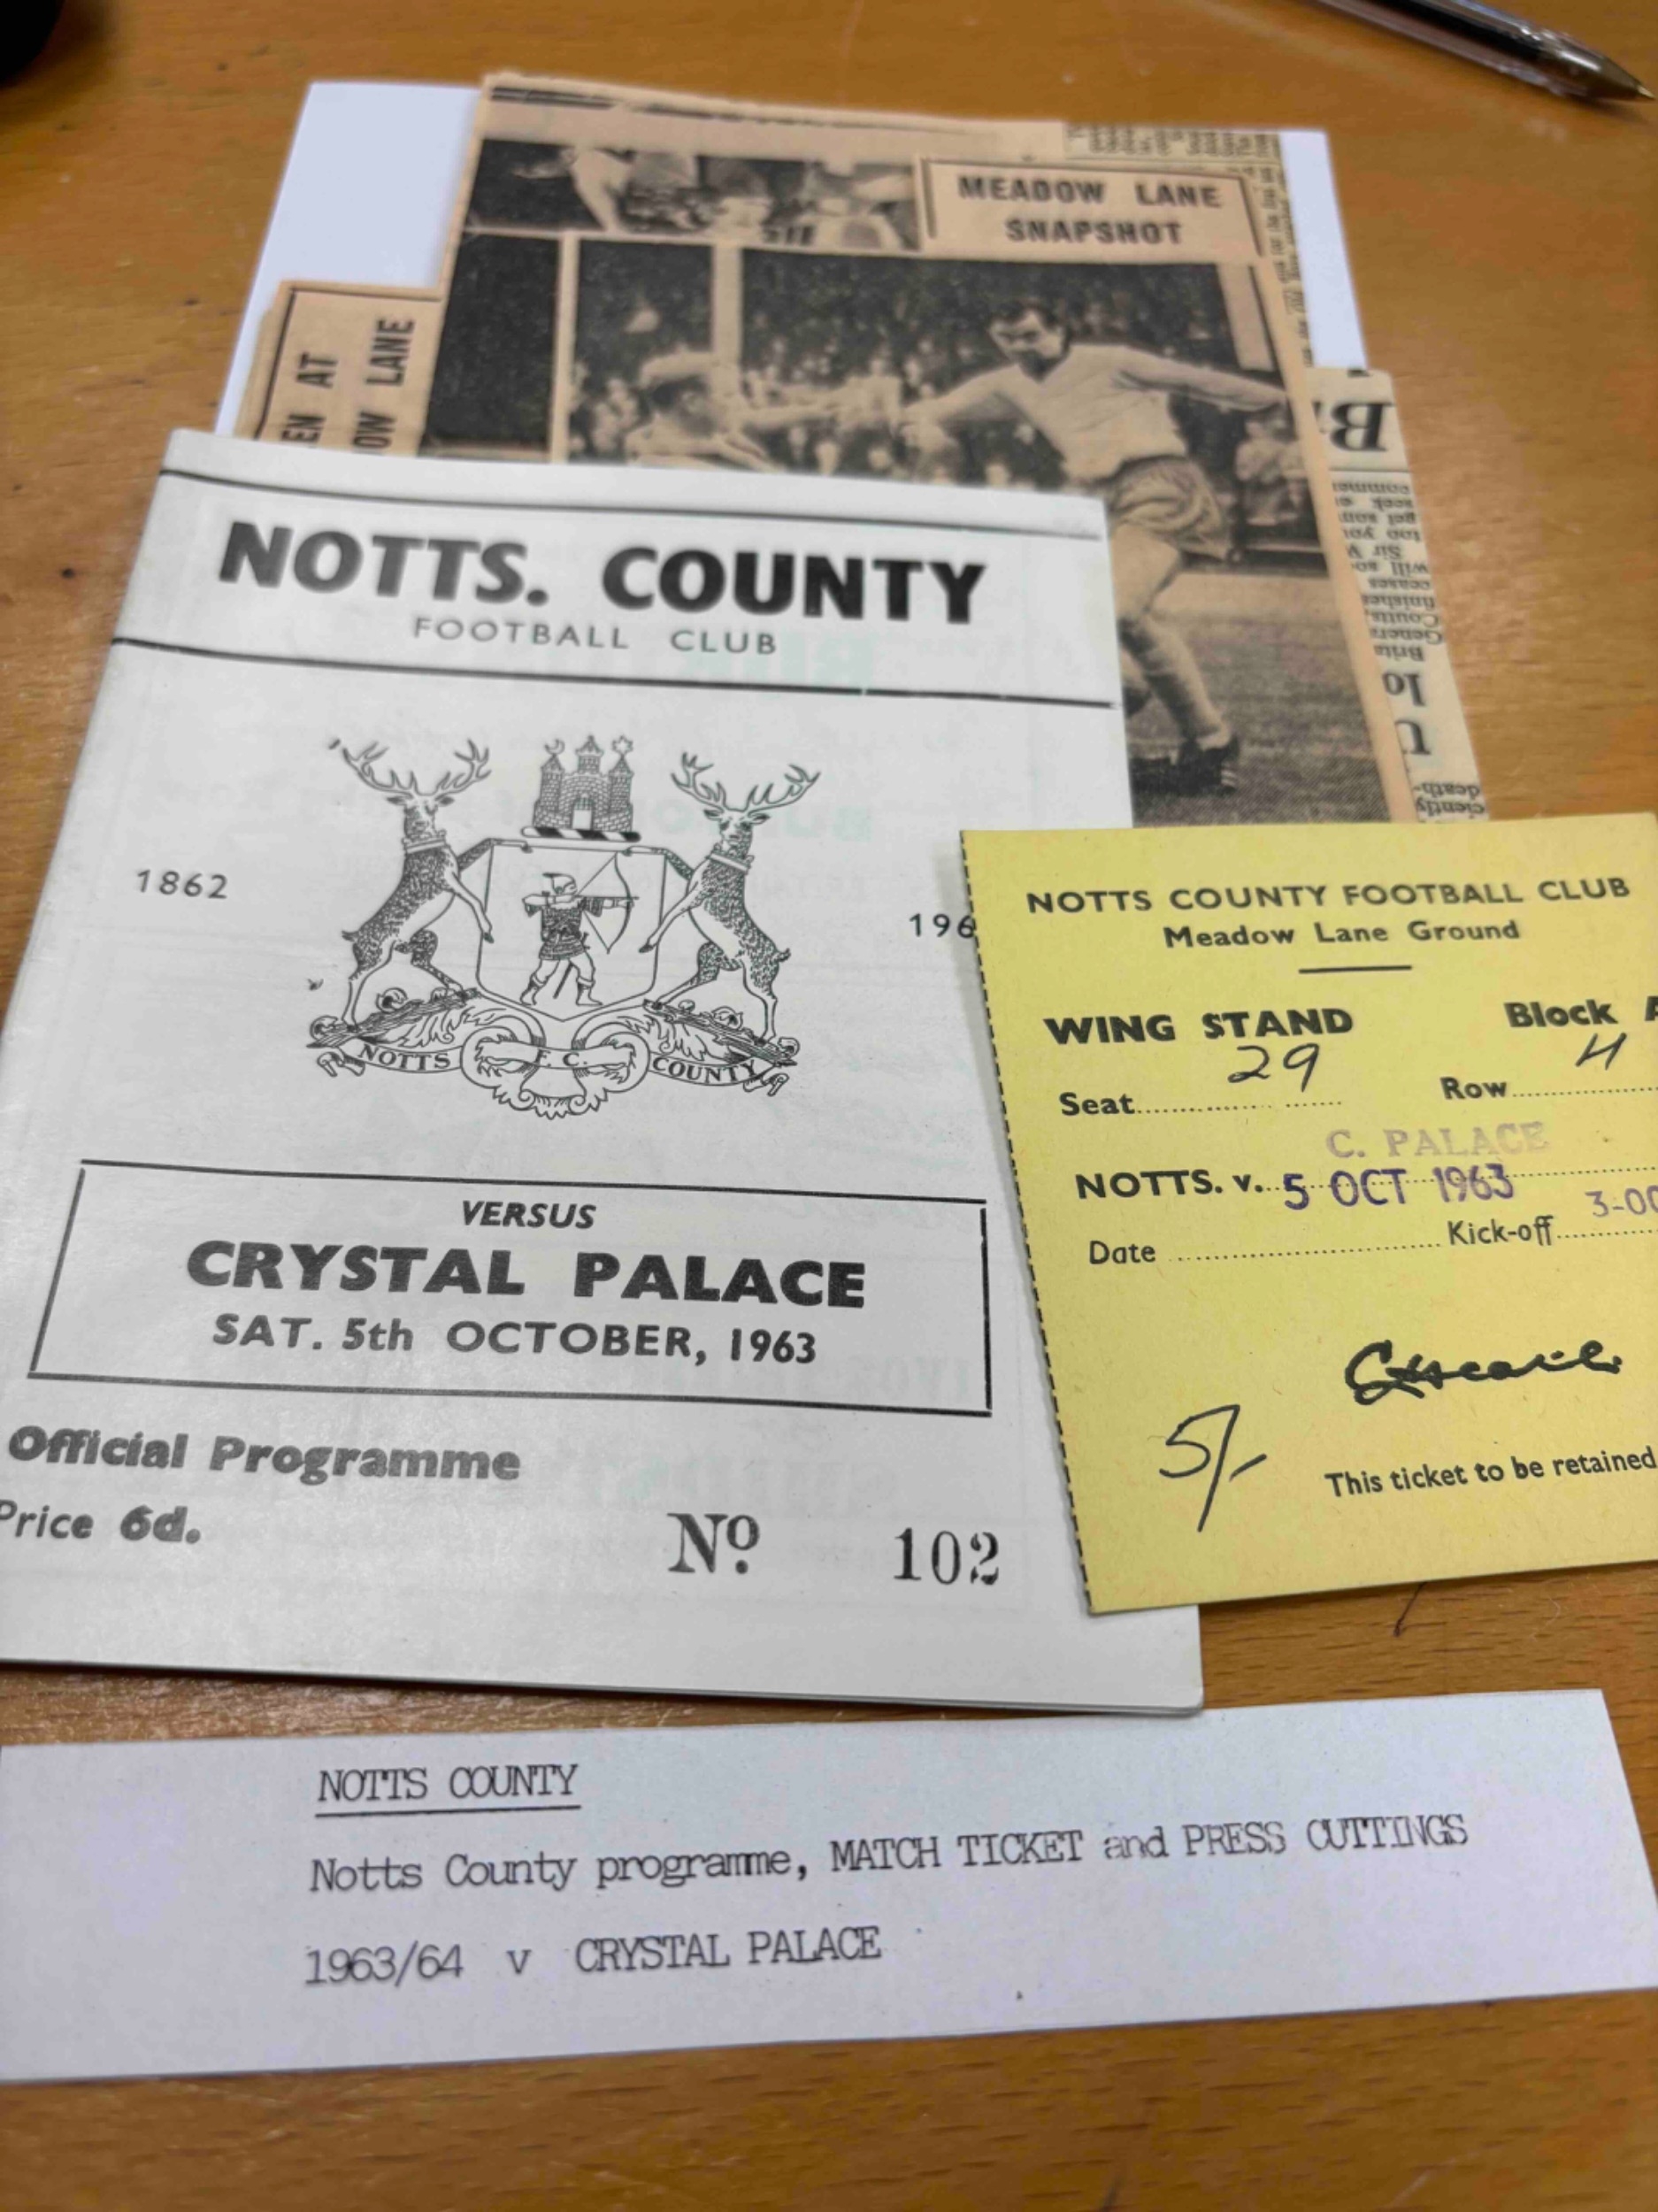 MEADOW LANE
SNAPSHOT
EN AT
OW LANE
NOTTS. COUNTY
FOOTBALL CLUB
1862
196
NOTTS F. C. COUNTY
VERSUS
CRYSTAL PALACE
SAT. 5th OCTOBER, 1963
Official Programme
Price 6d.
No 102
NOTTS COUNTY FOOTBALL CLUB
Meadow Lane Ground
WING STAND Block A
Seat 29 Row H
C. PALACE
NOTTS. v. 5 OCT 1963
Date Kick-off 3-00
5/-
This ticket to be retained
NOTTS COUNTY
Notts County programme, MATCH TICKET and PRESS CUTTINGS
1963/64 v CRYSTAL PALACE